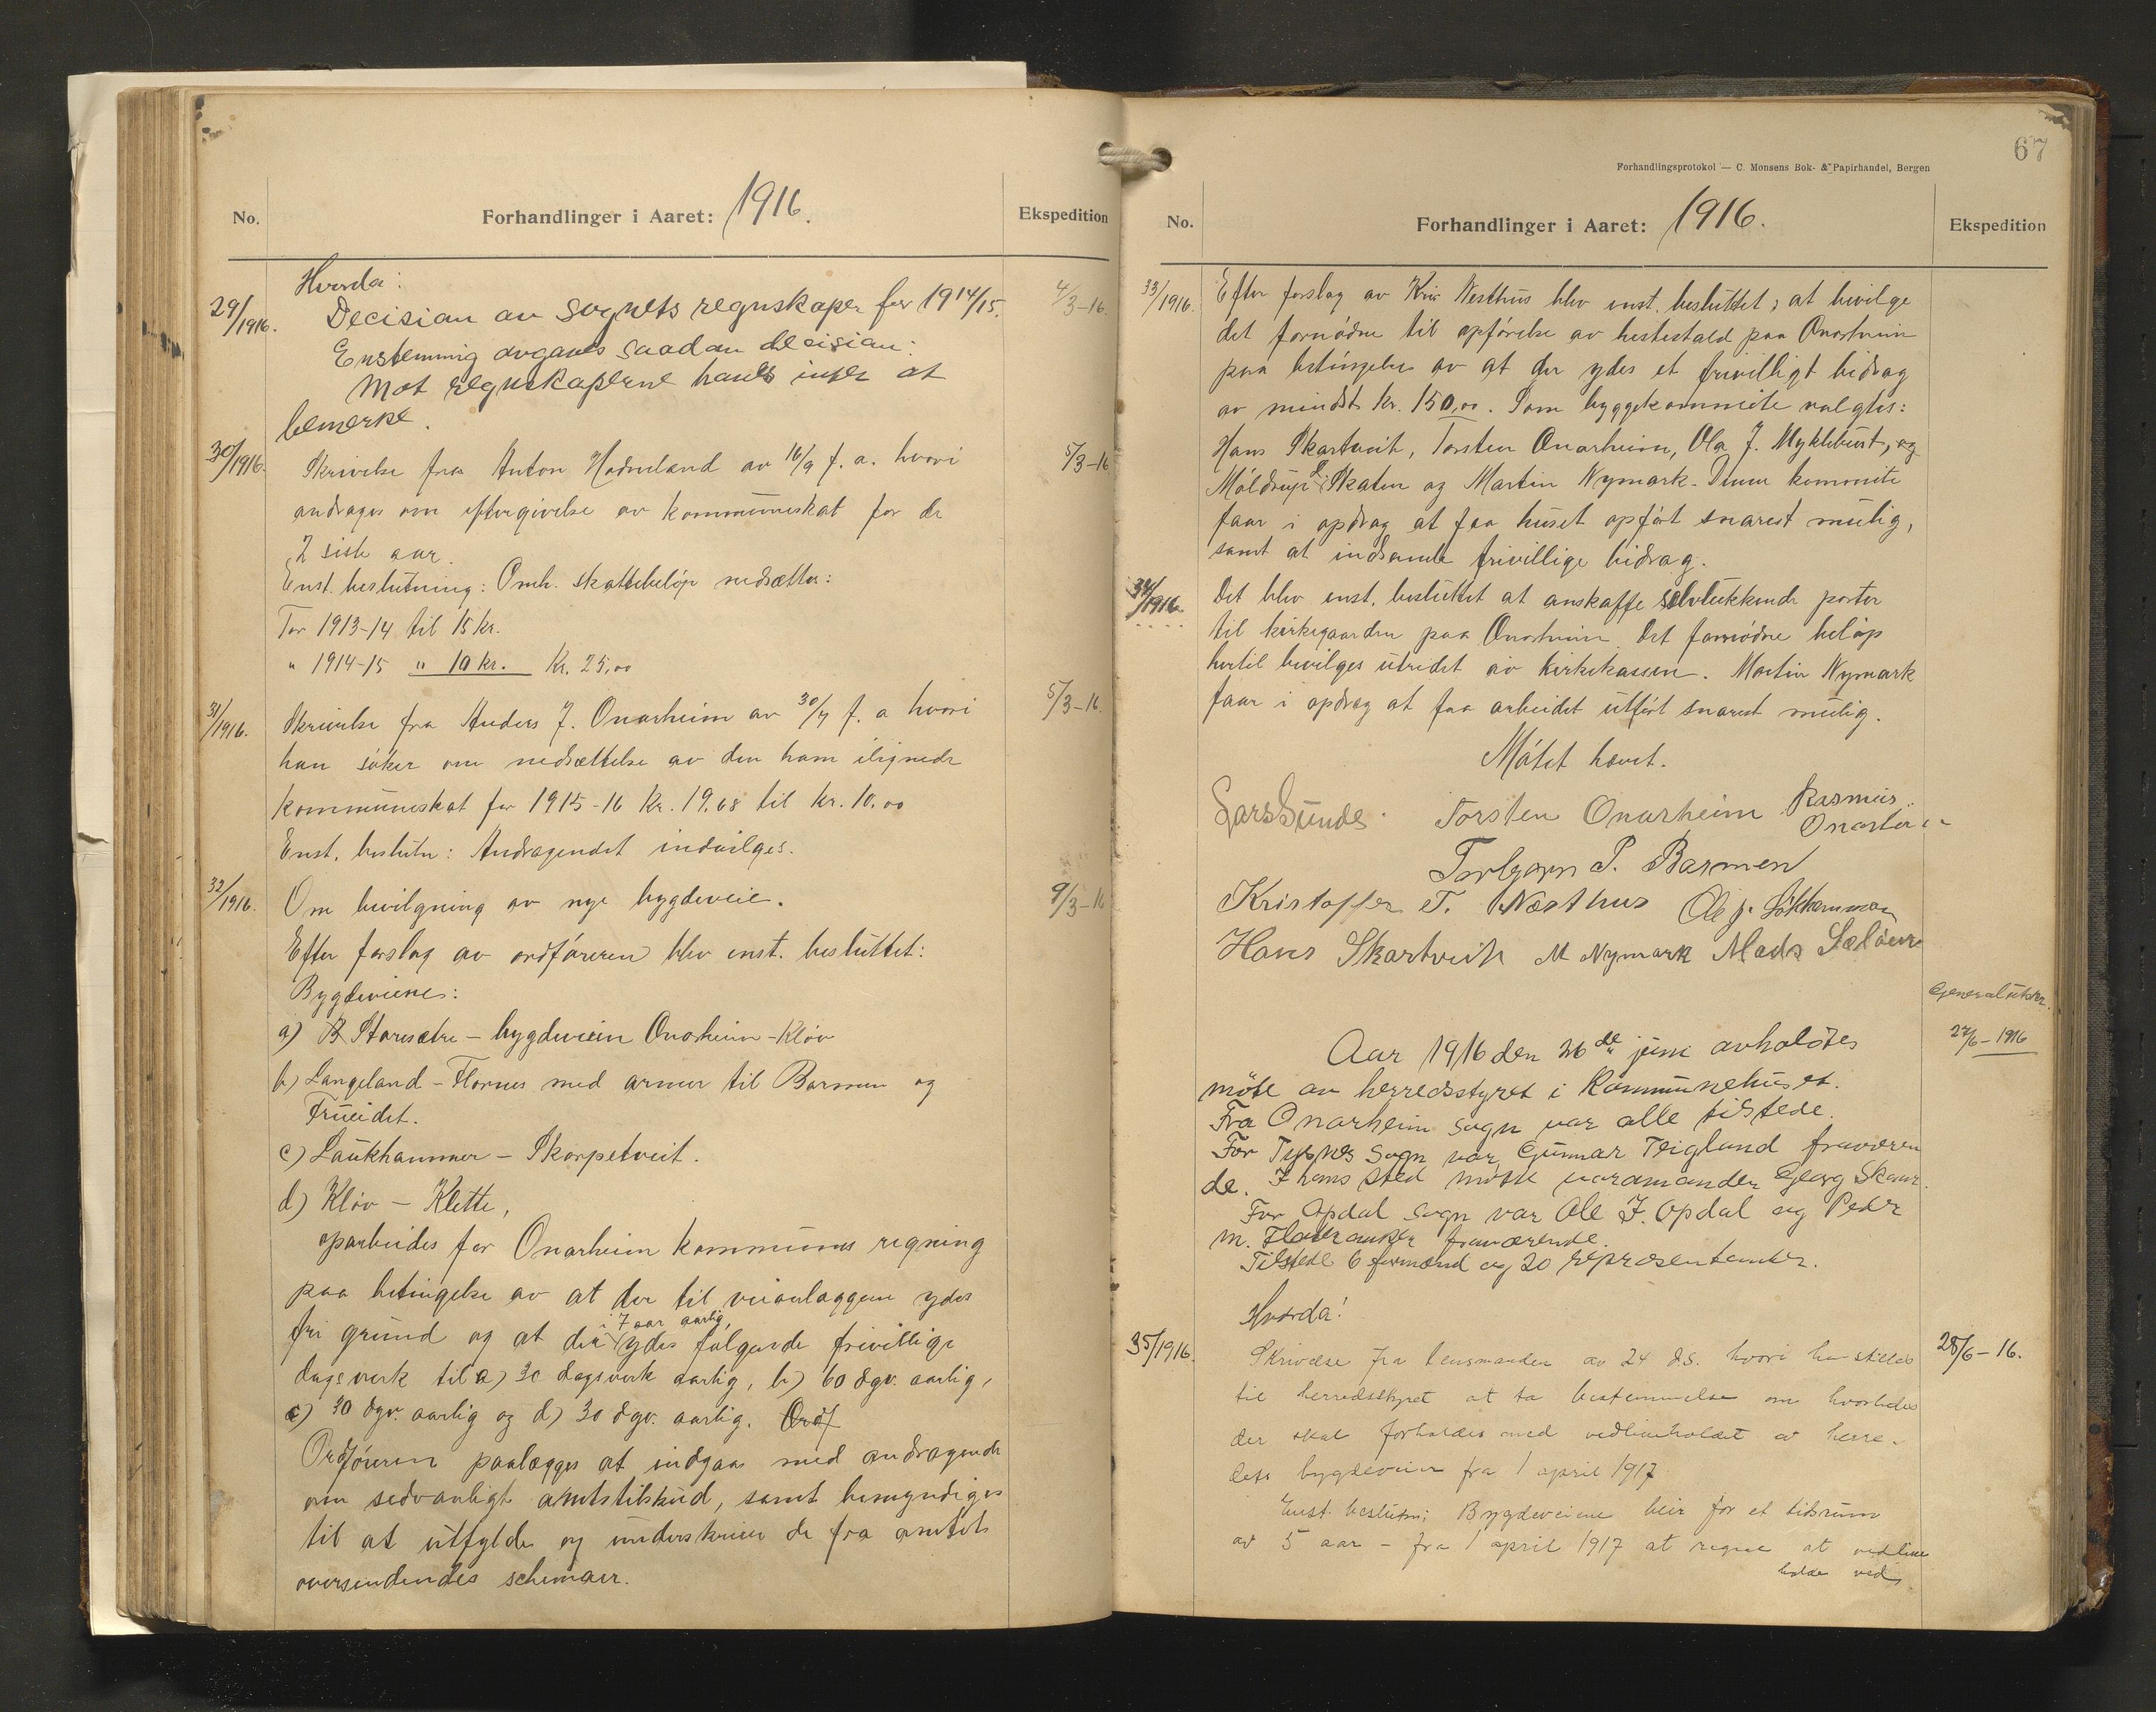 No.
Forhandlinger i Aaret: 1916.
Ekspedition
Hvorda:
29/1916.
Decision av sognets regnskaper for 1914/15.
4/3-16.
Enstemmig avgaves saadan decision:
Mot regnskaperne haves intet at
bemerke.
30/1916.
Skrivelse fra Anton Hodneland av 16/9 f. a. hvori
5/3-16
andrages om eftergivelse av kommuneskat for de
2 siste aar.
Enst. beslutning: Omh. skattebeløp nedsættes:
For 1913-14 til 15 kr.
" 1914-15 " 10 kr. Kr. 25,00
31/1916.
Skrivelse fra Anders J. Onarheim av 30/7 f. a hvori
5/3-16.
han søker om nedsættelse av den ham ilignede
kommuneskat for 1915-16 kr. 19.68 til kr. 10.00
Enst. beslutn: Andragendet indvilges.
32/1916.
Om bevilgning av nye bygdeveie.
9/3-16
Efter forslag av ordføreren blev enst. besluttet:
Bygdeveiene:
a) Staresætre - bygdeveien Onarheim - Kløv
b) Langeland - Flornes med armer til Barmen og
Trueidet.
c) Laukhammer - Skorpetveit.
d) Kløv - Klette,
oparbeides for Onarheim kommunes regning
paa betingelse av at der til veianlæggene ydes
fri grund og at der i 7 aar aarlig, ydes følgende frivillige
dagsverk til a) 30 dagsverk aarlig, b) 60 dgv. aarlig,
c) 30 dgv. aarlig og d) 30 dgv. aarlig. Ordf
Ordføreren paalægges at indgaa med andragende
om sedvanligt amtstilskud, samt bemyndiges
til at utfylde og underskrive de fra amtet
oversendendes schemaer.
67
Forhandlingsprotokol — C. Monsens Bok- & Papirhandel, Bergen
No.
Forhandlinger i Aaret: 1916.
Ekspedition
33/1916.
Efter forslag av Kris Nesthus blev enst. besluttet; at bevilge
det fornødne til opførelse av hestestald paa Onarheim
paa betingelse av at der ydes et frivilligt bidrag
av mindst kr. 150,00. Som byggekommite valgtes:
Hans Skartveit, Torsten Onarheim, Ola J. Myklebust, og
Møldrup Skaten og Martin Nymark. Denne kommite
faar i opdrag at faa huset opført snarest mulig,
samt at indsamle frivillige bidrag.
34/1916.
Det blev enst. besluttet at anskaffe selvlukkende porter
til kirkegaarden paa Onarheim. Det fornødne beløp
hertil bevilges utredet av kirkekassen. Martin Nymark
faar i opdrag at faa arbeidet utført snarest mulig.
Møtet hævet.
Lars Sunde. Torsten Onarheim Rasmus
Torbjørn P. Barmen
Kristoffer T. Næsthus Ole J.
Hans Skartveit M Nymark Mads Sæløen
27/6-1916
Aar 1916 den 26de juni avholdtes
møte av herredsstyret i Kommunehuset.
Fra Onarheim sogn var alle tilstede.
For Tysnes sogn var Gunnar Teigland fraværen
de. I hans sted møtte varamanden Georg
For Opdal sogn var Ole J. Opdal og Peder
m. fraværende.
Tilstede 6 formænd og 20 repræsentanter.
Hvorda!
35/1916.
Skrivelse fra lensmanden av 24 d.s. hvori han stiller
28/6-16.
til herredsstyret at ta bestemmelse om hvorledes
der skal forholdes med vedlikeholdet av herre-
dets bygdeveier fra 1 april 1917
Enst. beslutn: Bygdeveiene blir for et tidsrum
av 5 aar - fra 1 april 1917 at regne at vedlike
holde ved